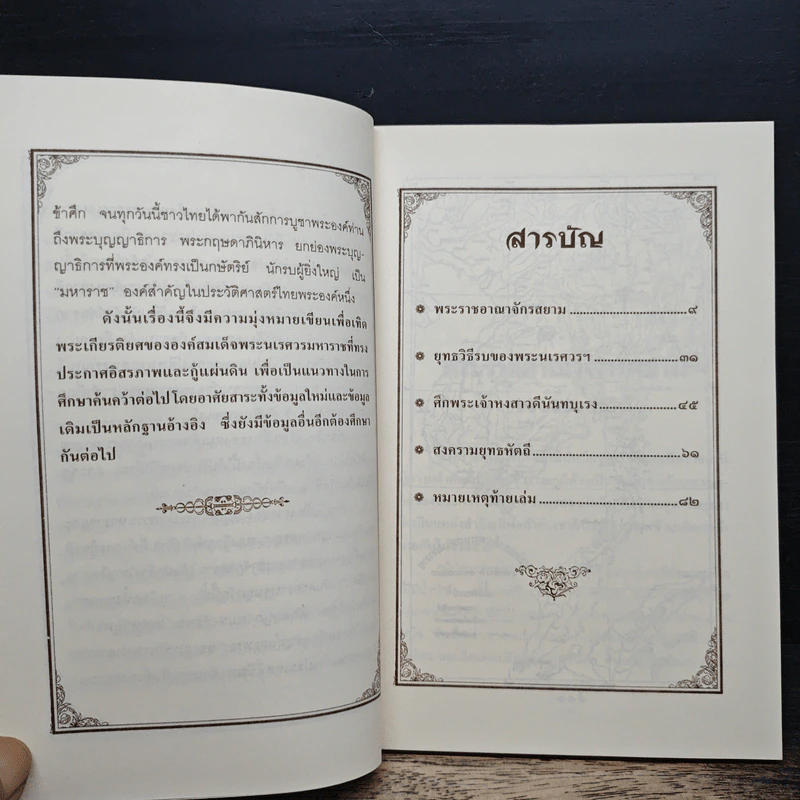 ข้าศึก จนทุกวันนี้ชาวไทยได้พากันสักการบูชาพระองค์ท่าน
ถึงพระบุญญาธิการ พระกฤษดาภินิหาร ยกย่องพระบุญ-
ญาธิการที่พระองค์ทรงเป็นกษัตริย์ นักรบผู้ยิ่งใหญ่ เป็น
"มหาราช" องค์สำคัญในประวัติศาสตร์ไทยพระองค์หนึ่ง
ดังนั้นเรื่องนี้จึงมีความมุ่งหมายเขียนเพื่อเทิด
พระเกียรติยศขององค์สมเด็จพระนเรศวรมหาราชที่ทรง
ประกาศอิสรภาพและกู้แผ่นดิน เพื่อเป็นแนวทางในการ
ศึกษาค้นคว้าต่อไปโดยอาศัยสาระทั้งข้อมูลใหม่และข้อมูล
เดิมเป็นหลักฐานอ้างอิง ซึ่งยังมีข้อมูลอื่นอีกต้องศึกษา
กันต่อไป
สารบัญ
พระราชอาณาจักรสยาม ........................... ๙
ยุทธวิธีรบของพระนเรศวรฯ ..................... ๓๑
ศึกพระเจ้าหงสาวดีนันทบุเรง ................... ๔๕
สงครามยุทธหัตถี ................................... ๖๑
หมายเหตุท้ายเล่ม .................................. ๘๒